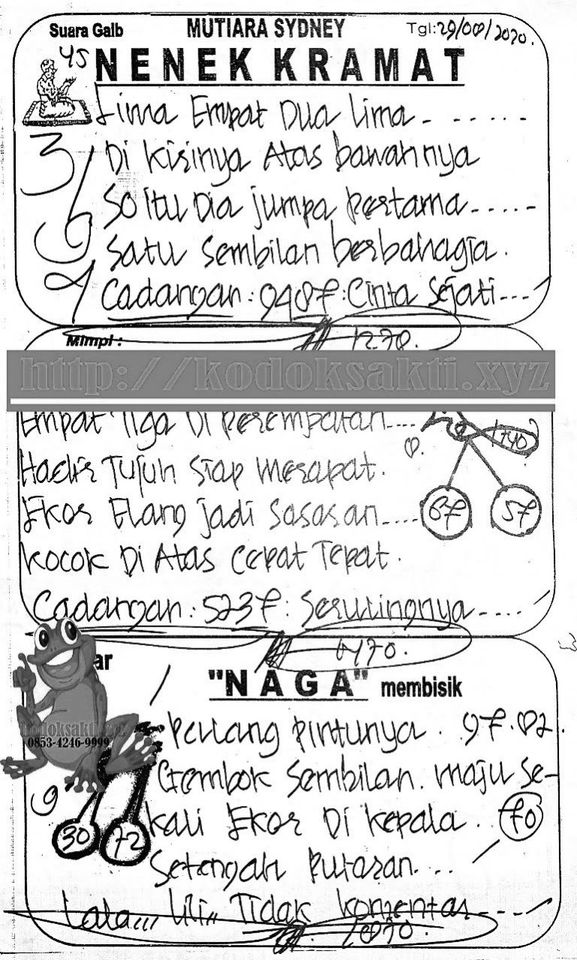 Suara Gaib MUTIARA SYDNEY Tgl: 29/08/2020.
45 NENEK KRAMAT
Lima Empat Dua Lima - - - - - -
3/6 Di Kirinya Atas bawahnya
So itu Dia jumpa pertama - - - - -
9 Satu Sembilan berbahagia.
Cadangan : 9487 : Cinta Sejati - - -
Mimpi : 1270.
http://kodoksakti.xyz
Empat Tiga Di Perempatan - - -
1740
Hadir Tujuh Siap merapat.
Ekor Elang jadi Sasaran - - - -
67 57
Kocok Di Atas Cepat Tepat.
Cadangan : 5237 : Serutingnya - - - -
6470.
ar "NAGA" membisik
kodoksakti.xyz
0853-4246-9999
Perlang Pintunya . 97.02.
9 Gembok Sembilan . maju se-
kali Ekor Di Kepala . 70
30 72
Setengah Putaran . . .
Lala,,, Lili,, Tidak Komentar - - - -
1870.